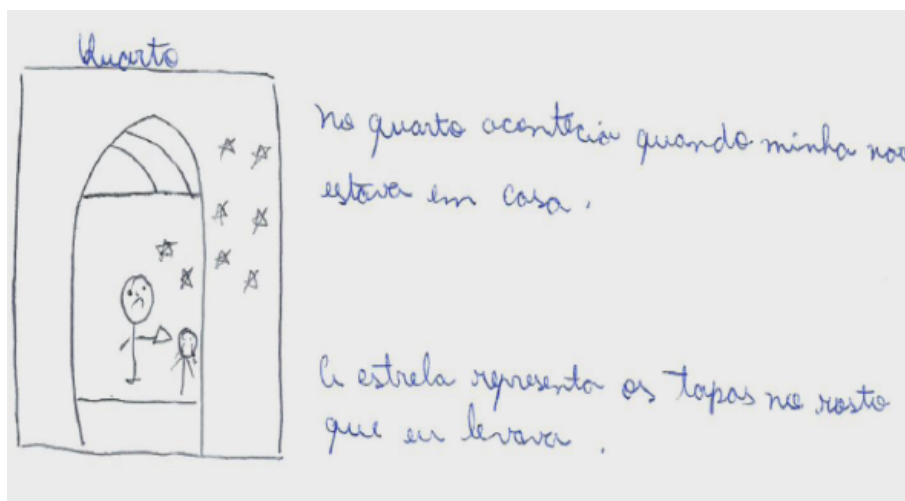 Quarto
no quarto acontecia quando minha
estava em casa.
A estrela representa os tapas no rosto
que eu levava.